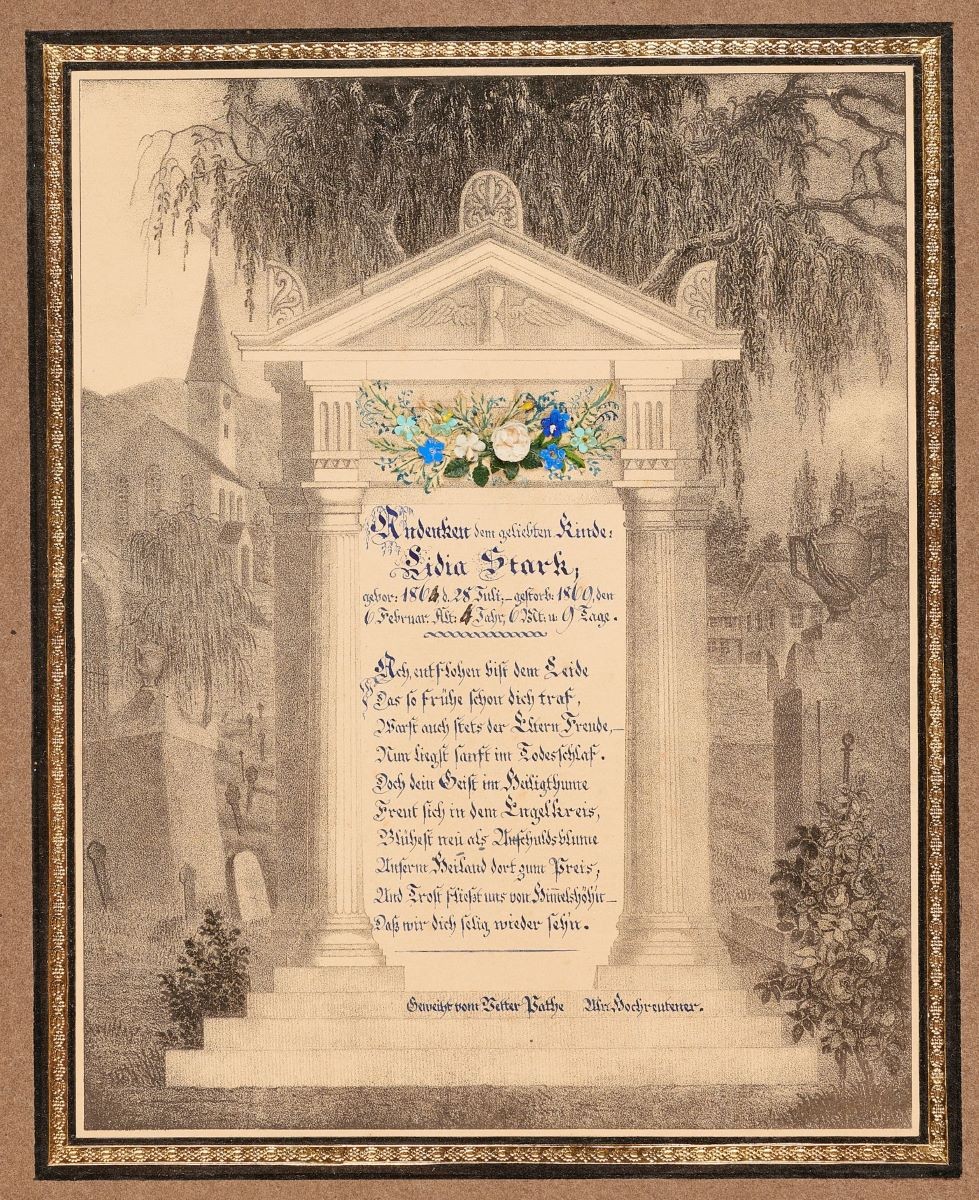 Andenken dem geliebten Kinde:
Lidia Stark,
gebor: 1864 d. 28 Juli, – gestorb: 1869, den
6 Februar. Alt: 4 Jahr, 6 Mt: u: 9 Tage.
Ach, entflohen bist dem Leide
Das so frühe schon dich traf,
Warst auch stets der Eltern Freude, –
Nun liegst sanft im Todesschlaf.
Doch dein Geist im Heiligthume
Freut sich in dem Engelkreis,
Blühest neu als Unschuldsblume
Unserm Heiland dort zum Preis,
Und Trost fließt uns von Him̅elshöh'n –
Daß wir dich selig wieder seh'n.
Geweiht vom Vetter Pathe Ulr. Hochreutener.